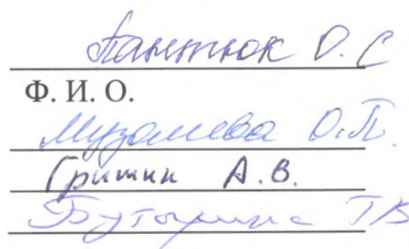 Пантюк О.С
Ф. И. О.
Музалева О.П.
Гришин А.В.
Бутырина ТВ